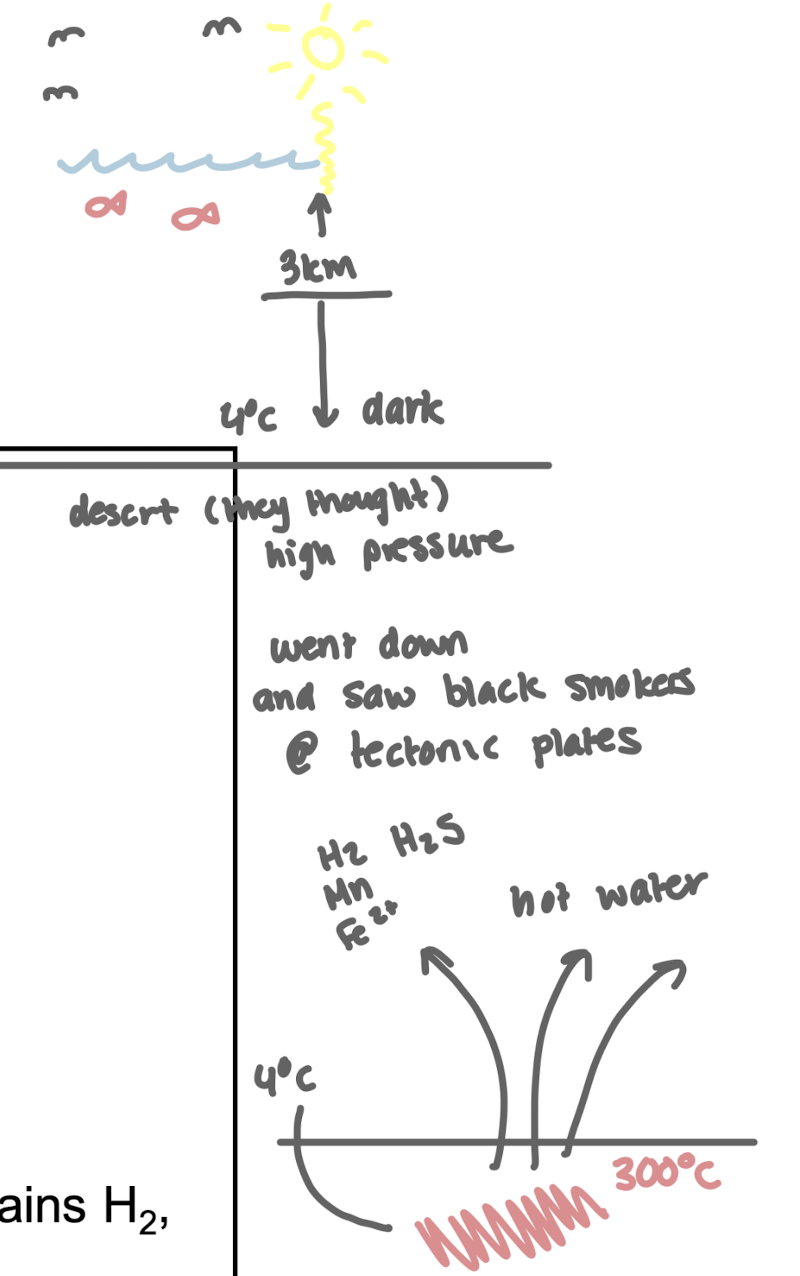 3km
4°C dark
desert (they thought)
high pressure
went down
and saw black smokers
@ tectonic plates
H2 H₂S
Mn
Fe²⁺
hot water
4°C
300°C
ains H₂,